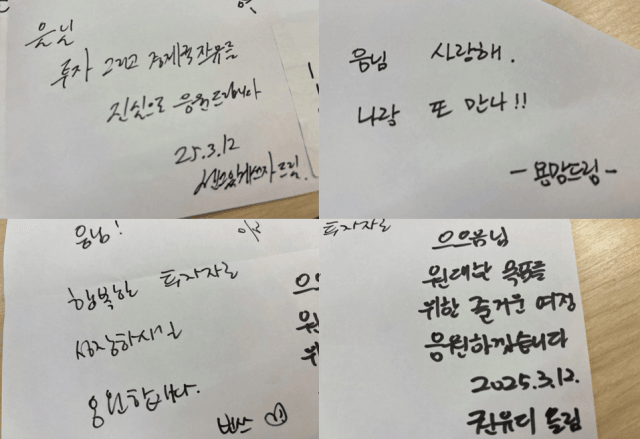 음님
투자 그리고 경제적 자유를
진심으로 응원드립니다
25.3.12
드림.
음님 사랑해.
나랑 또 만나!!
-용망드림-
음님!
행복한 투자자로
성장하시길
응원합니다.
투자자로
으으음님
원대한 목표를
위한 즐거운 여정
응원하겠습니다
2025.3.12.
권유디 올림